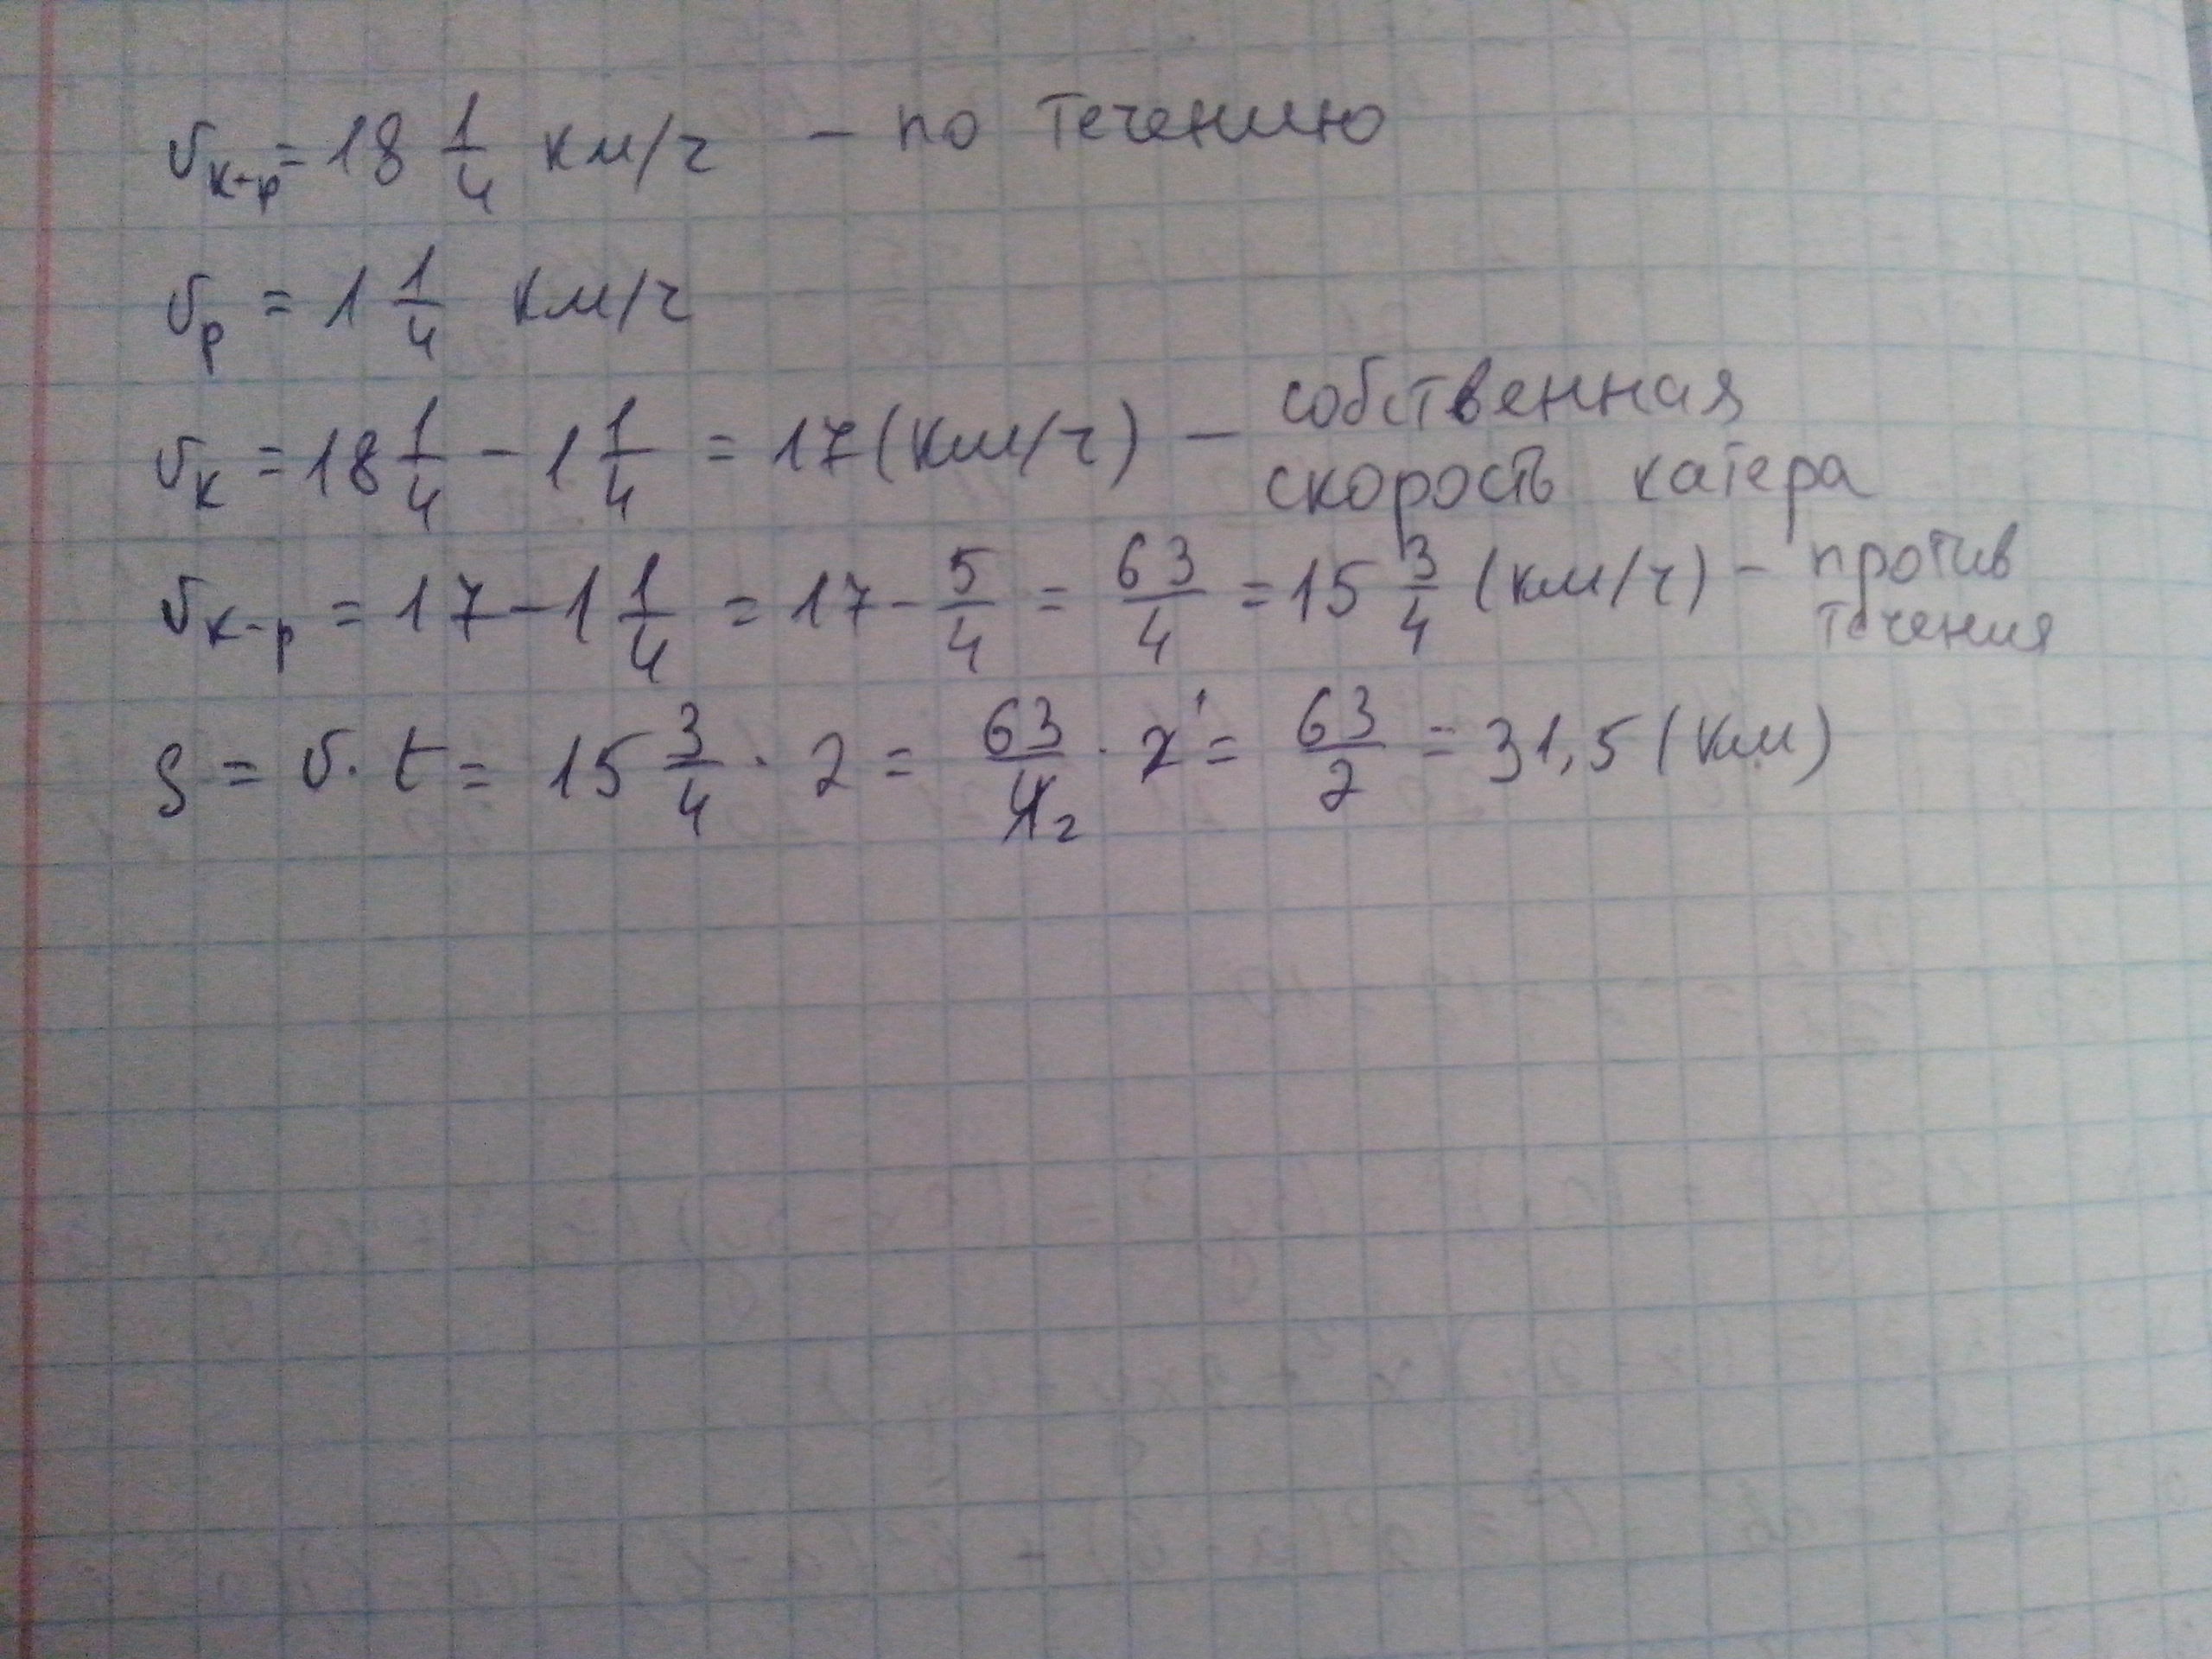 υк-р = 18 1/4 км/ч - по течению
υр = 1 1/4 км/ч
υк = 18 1/4 - 1 1/4 = 17 (км/ч) - собственная
скорость катера
υк-р = 17 - 1 1/4 = 17 - 5/4 = 63/4 = 15 3/4 (км/ч) - против
течения
S = υ · t = 15 3/4 · 2 = 63/4 2 · 2 1 = 63/2 = 31,5 (км)